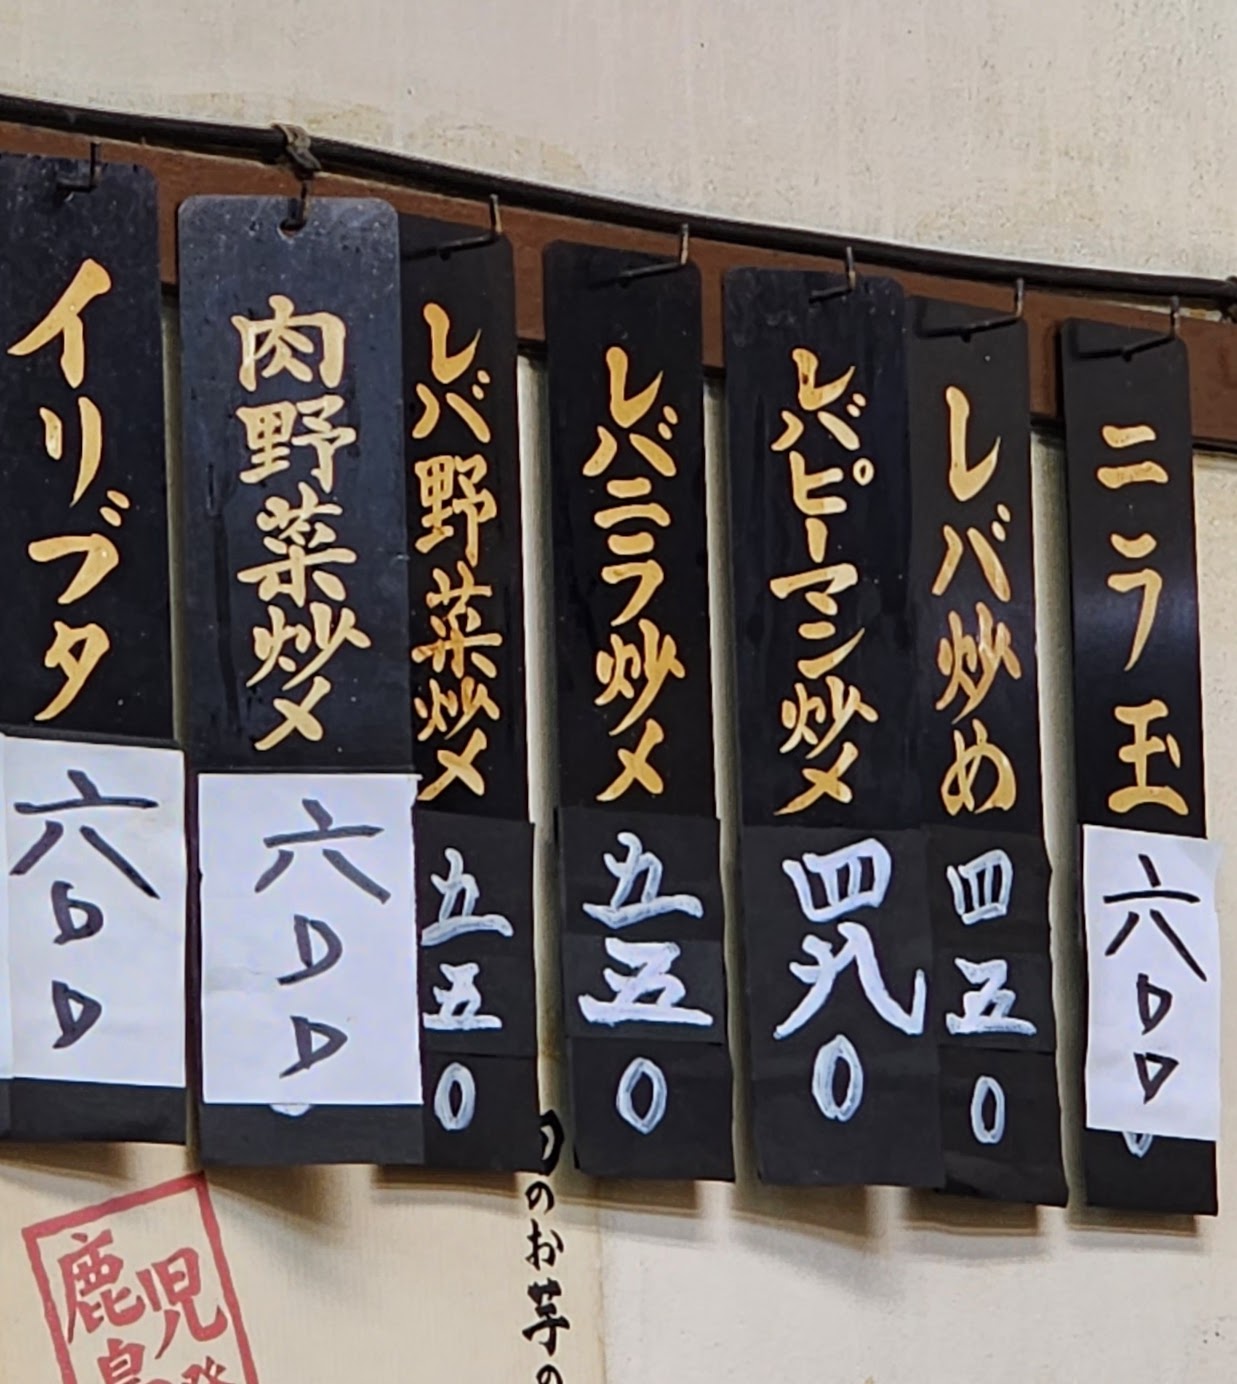 ニラ玉
六〇〇
レバ炒め
四五〇
レバピーマン炒メ
四八〇
レバニラ炒メ
五五〇
レバ野菜炒メ
五五〇
肉野菜炒メ
六〇〇
イリブタ
六〇〇
のお芋の
鹿児